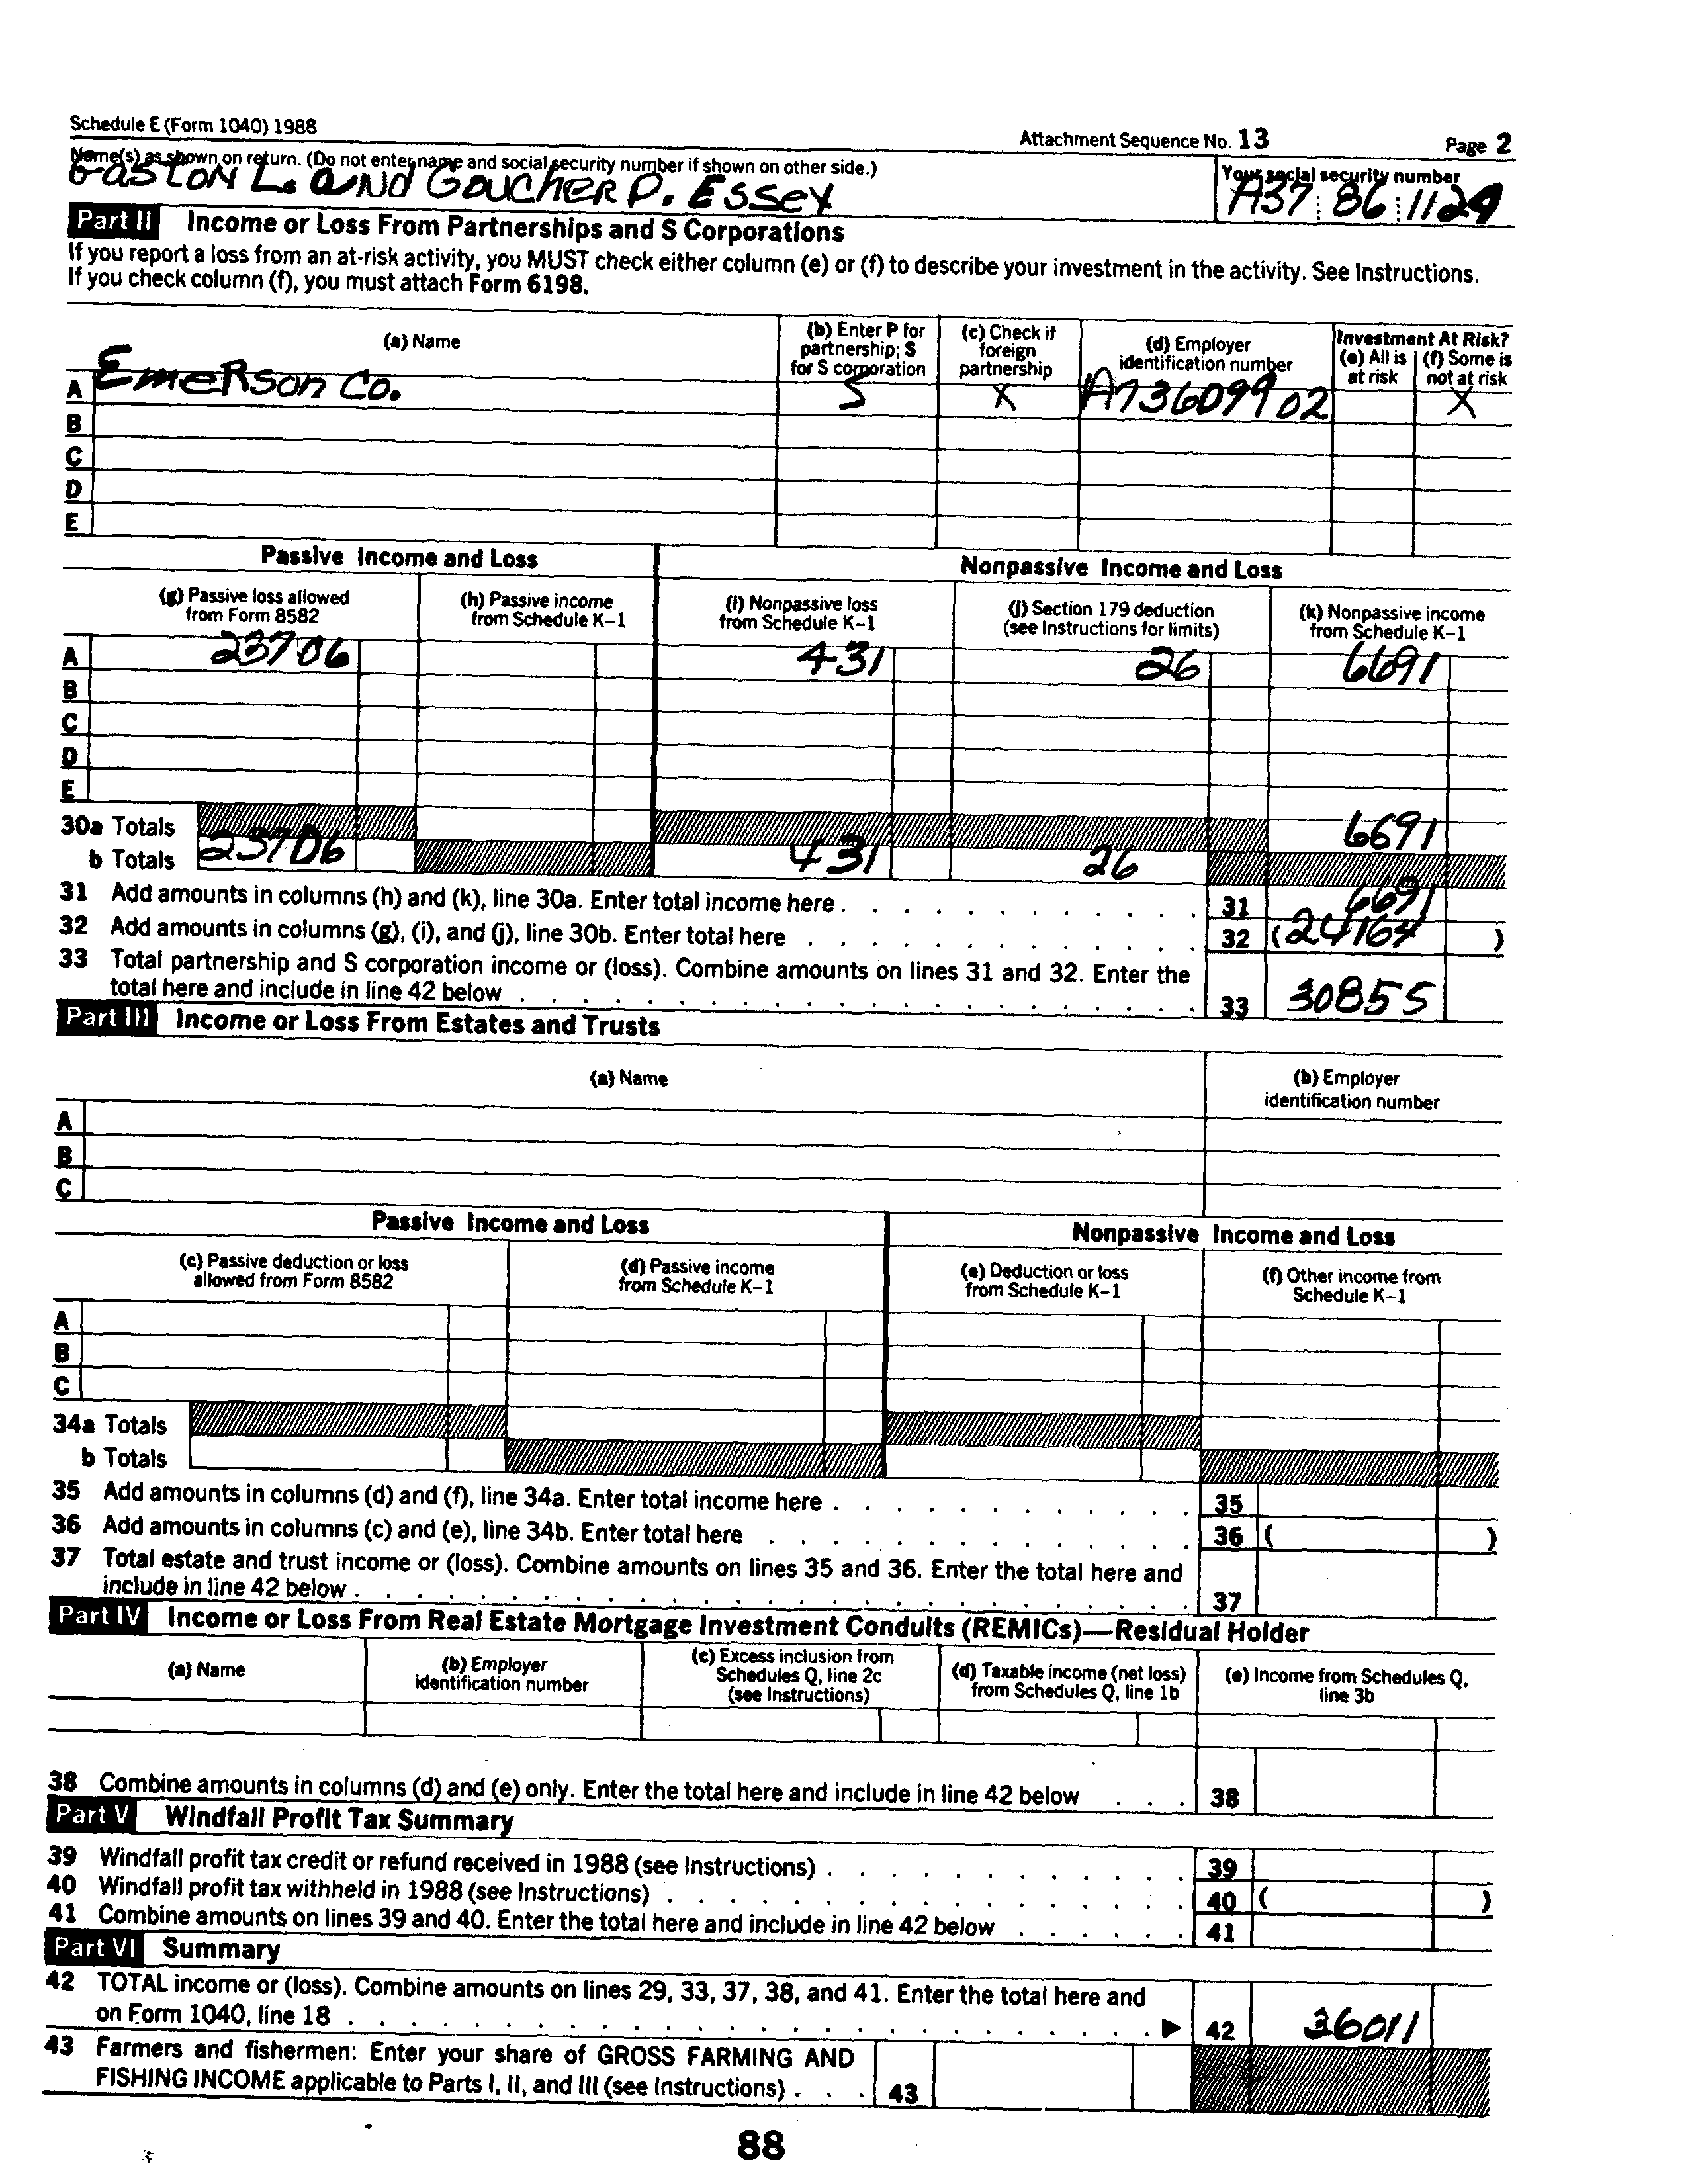 Schedule E (Form 1040) 1988
Attachment Sequence No. 13 Page 2
Name(s) as shown on return. (Do not enter name and social security number if shown on other side.)
Your social security number
Gaston L. and Goucher P. Essey
A37 86 1124
Part II Income or Loss From Partnerships and S Corporations
If you report a loss from an at-risk activity, you MUST check either column (e) or (f) to describe your investment in the activity. See Instructions.
If you check column (f), you must attach Form 6198.
(a) Name
(b) Enter P for partnership; S for S corporation
(c) Check if foreign partnership
(d) Employer identification number
Investment At Risk?
(e) All is at risk
(f) Some is not at risk
A Emerson Co. S X A73609902 X
B
C
D
E
Passive Income and Loss
Nonpassive Income and Loss
(g) Passive loss allowed from Form 8582
(h) Passive income from Schedule K–1
(i) Nonpassive loss from Schedule K–1
(j) Section 179 deduction (see Instructions for limits)
(k) Nonpassive income from Schedule K–1
A 23706 431 26 6691
B
C
D
E
30a Totals 6691
b Totals 23706 431 26
31 Add amounts in columns (h) and (k), line 30a. Enter total income here . 31 6691
32 Add amounts in columns (g), (i), and (j), line 30b. Enter total here . 32 (24164)
33 Total partnership and S corporation income or (loss). Combine amounts on lines 31 and 32. Enter the
total here and include in line 42 below . 33 30855
Part III Income or Loss From Estates and Trusts
(a) Name
(b) Employer identification number
A
B
C
Passive Income and Loss
Nonpassive Income and Loss
(c) Passive deduction or loss allowed from Form 8582
(d) Passive income from Schedule K–1
(e) Deduction or loss from Schedule K–1
(f) Other income from Schedule K–1
A
B
C
34a Totals
b Totals
35 Add amounts in columns (d) and (f), line 34a. Enter total income here . 35
36 Add amounts in columns (c) and (e), line 34b. Enter total here . 36 ( )
37 Total estate and trust income or (loss). Combine amounts on lines 35 and 36. Enter the total here and
include in line 42 below . 37
Part IV Income or Loss From Real Estate Mortgage Investment Conduits (REMICs)—Residual Holder
(a) Name
(b) Employer identification number
(c) Excess inclusion from Schedules Q, line 2c (see Instructions)
(d) Taxable income (net loss) from Schedules Q, line 1b
(e) Income from Schedules Q, line 3b
38 Combine amounts in columns (d) and (e) only. Enter the total here and include in line 42 below . . . 38
Part V Windfall Profit Tax Summary
39 Windfall profit tax credit or refund received in 1988 (see Instructions) . 39
40 Windfall profit tax withheld in 1988 (see Instructions) . 40 ( )
41 Combine amounts on lines 39 and 40. Enter the total here and include in line 42 below . 41
Part VI Summary
42 TOTAL income or (loss). Combine amounts on lines 29, 33, 37, 38, and 41. Enter the total here and
on Form 1040, line 18 . ► 42 36011
43 Farmers and fishermen: Enter your share of GROSS FARMING AND
FISHING INCOME applicable to Parts I, II, and III (see Instructions) . . . 43
88